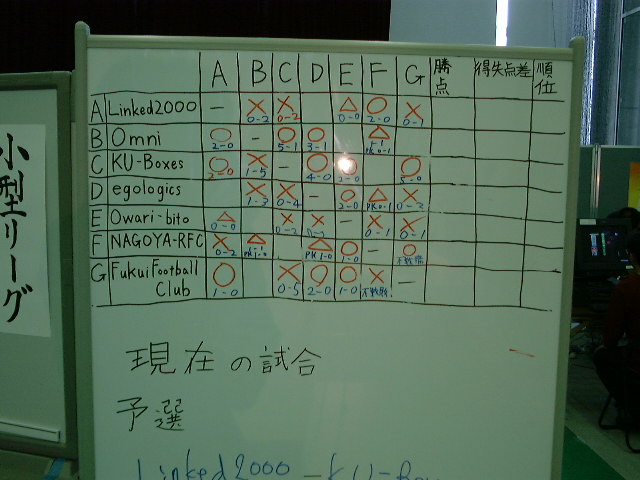 小型リーグ
A B C D E F G 勝点 得失点差 順位
A Linked2000 — × 0-2 × 0-2 △ 0-0 ○ 2-0 × 0-1
B Omni ○ 2-0 — ○ 5-1 ○ 3-1 △
C KU-Boxes ○ 2-0 × 1-5 — ○ 4-0 ○ ○ 5-0
D egologics × 1-3 × 0-4 — ○ 2-0 △ PK 0-1 ×
E Owari-bito △ 0-0 × 0-2 × — × 0-1 × 0-1
F NAGOYA-RFC × 0-2 △ △ PK 1-0 ○ 1-0 — ○ 不戦勝
G Fukui Football Club ○ 1-0 × 0-5 ○ 2-0 ○ 1-0 × —
現在の試合
予選
Linked2000 - KU-